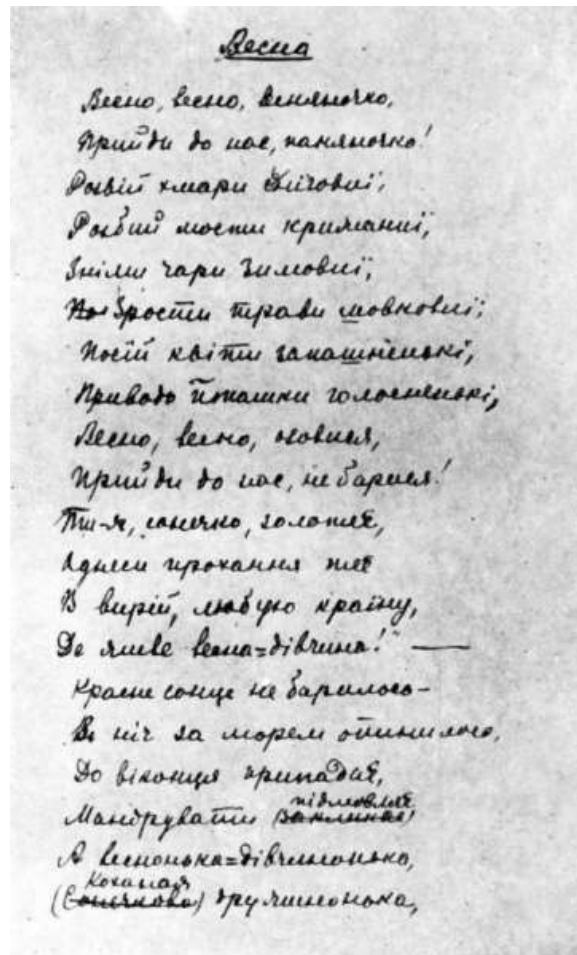 Весна
Весно, весно, весняночко,
Прийди до нас, панняночко!
Розвій хмари снігові,
Розбий мости крижаниї,
Зніми чари зимовиї,
Зрости трави шовковиї,
Посій квіти запашненькі,
Приводь пташки голосненькі,
Весно, весно, озовися,
Прийди до нас, не барися!
Ти-ж, сонечко, золотеє,
Однеси прохання
В вирій, любую країну,
Де живе весна=дівчина!" —
Красне сонце не барилось –
В ніч за морем опинилось,
До віконця припадає,
підмовляє
Мандрувати (закликає)
А весонька=дівчинонька,
Коханая
(Сонячкова) дружинонька,